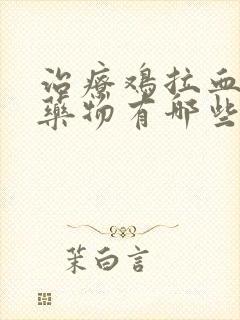 治療鸡拉血
藥物有哪些
茉白言